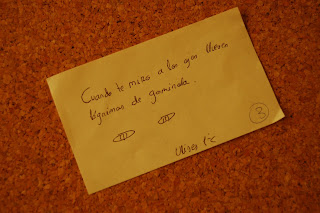 Cuando te miro a los ojos llueven
lágrimas de gominola.
3